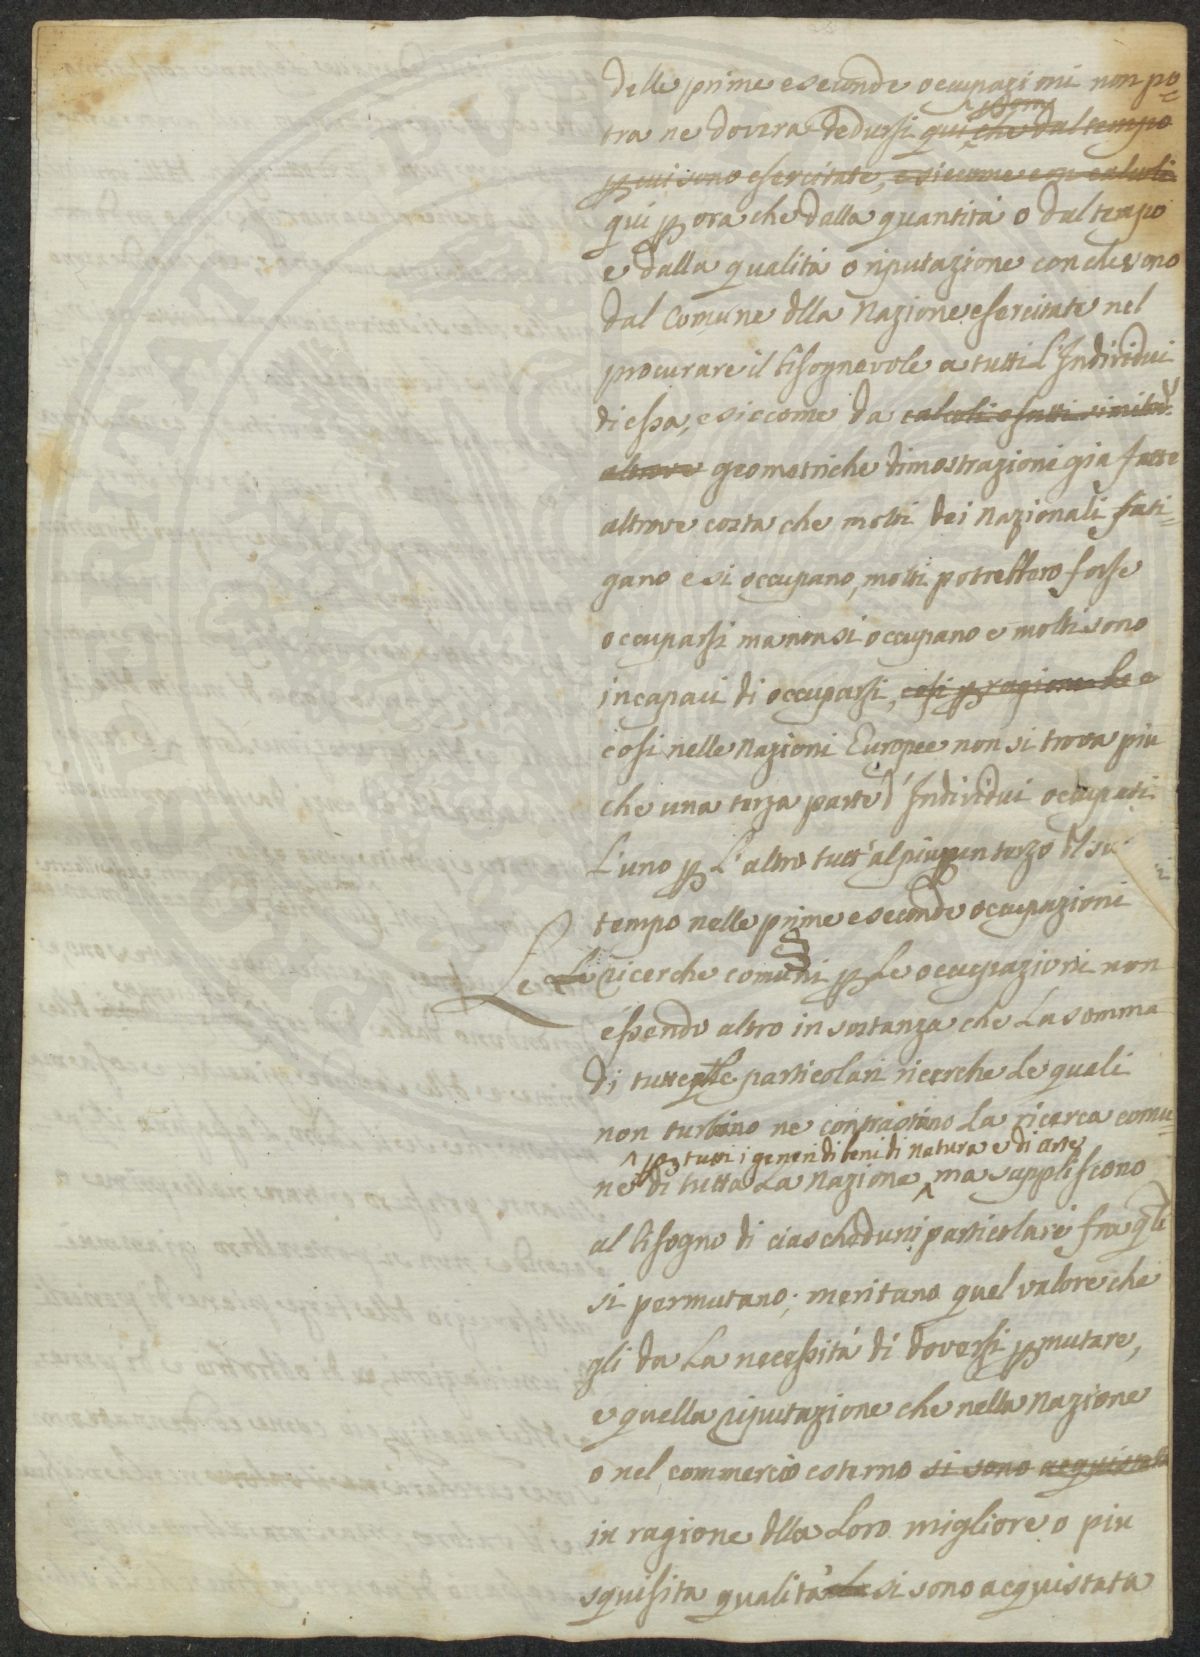 delle prime e seconde occupazioni non po=
tra ne dovera dedursi qui che dal tempo
p cui sono esercitate, e siccome con calcoli
qui p ora che dalla quantità o dal tempo
e dalla qualità o riputazione con che sono
dal Comune dlla Nazione esercitate nel
procurare il bisognevole a tutti l'Individui
di essa, e siccome da calcoli e fatti simili
altrove geometriche dimostrazioni gia fatte
altrove costa che molti dei Nazionali fati=
gano e si occupano, molti potrebbero forse
occuparsi ma non si occupano e molti sono
incapaci di occuparsi, cosi p ragione
cosi nelle Nazioni Europee non si trova piu
che una terza parte d'Individui occupati
l'uno p l'altro tutt'al piu p un terzo dl suo
tempo nelle prime e seconde occupazioni
§
Le Le ricerche comuni p le occupazioni non
essendo altro in sostanza che la somma
di tutte qlle particolari ricerche le quali
non turbano ne contrastano la ricerca comu=
p tutti i generi di beni di natura e di arte
ne di tutta la Nazione ma suppliscono
al bisogno di ciascheduni particolari fra qli
si permutano; meritano quel valore che
gli da la necessità di doversi pmutare,
e quella riputazione che nella Nazione
o nel commercio esterno si sono acquistata
in ragione dlla loro migliore o piu
squisita qualità si sono acquistata